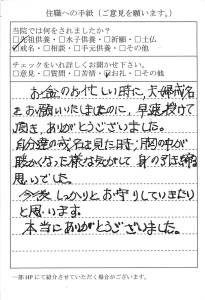 住職への手紙(ご意見を願います。)
当院では何をされましたか?
□先祖供養・□水子供養・□祈願・□土仏
☑戒名・□相談・□手元供養・□その他
チェックをいれ詳しくお聞かせ下さい。
□意見・□質問・□苦情・☑お礼・□その他
お盆のお忙しい時に、夫婦戒名
をお願いいたしましたのに、早速授けて
頂き、ありがとうございました。
自分達の戒名を見た時、胸の中が
暖かくなった様な気がして身の引き締る
思いでした。
今後しっかりとお守りしていきたい
と思います。
本当にありがとうございました。
一部HPにて紹介させていただく場合がございます。